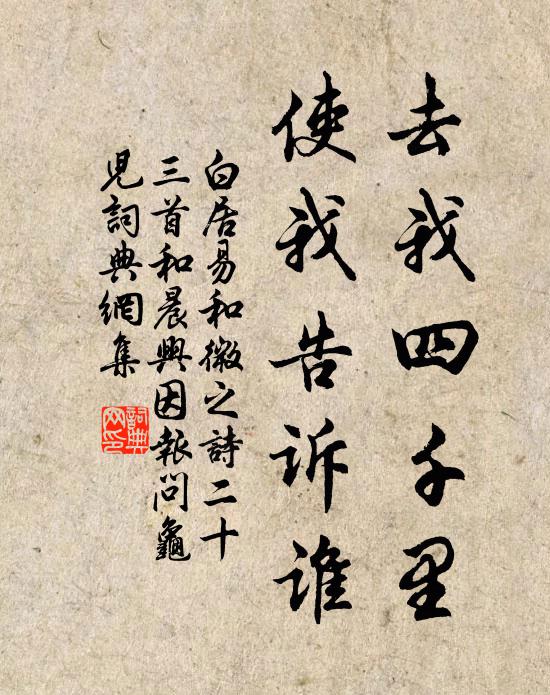 去我四千里
使我告诉谁
白居易和微之詩二十
三首和晨興因報問龜
児詞典網集
詞典
网印